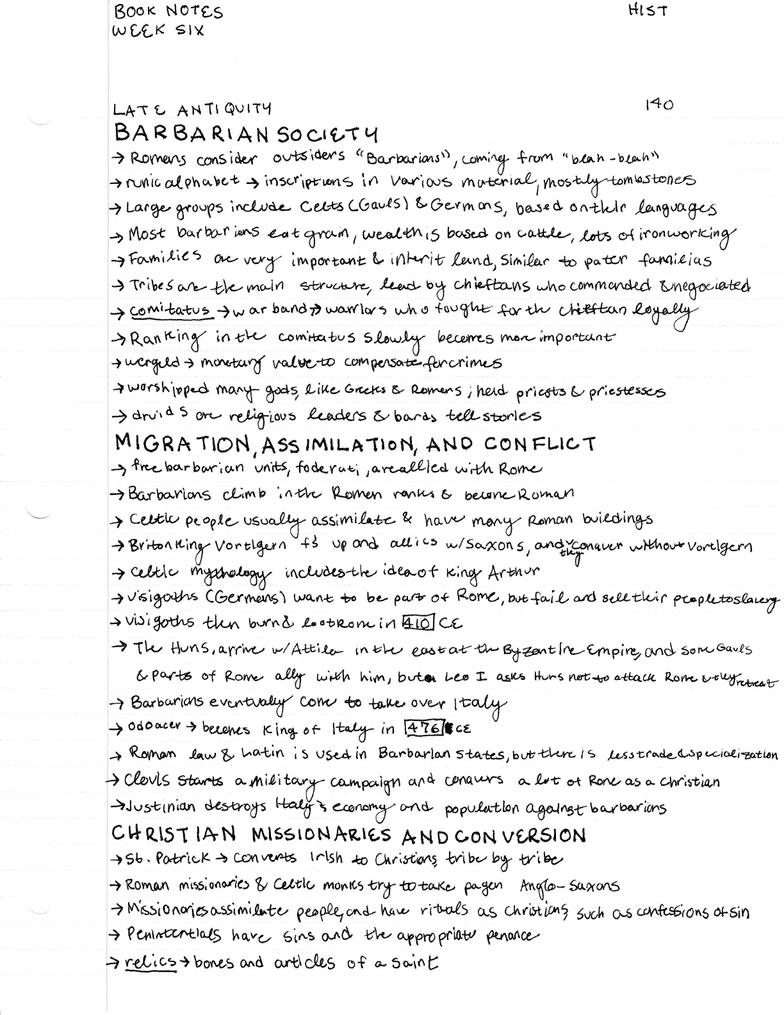 BOOK NOTES HIST
WEEK SIX
LATE ANTIQUITY 140
BARBARIAN SOCIETY
→ Romans consider outsiders "Barbarians", coming from "blah-blah"
→ runic alphabet → inscriptions in various material, mostly tombstones
→ Large groups include Celts (Gauls) & Germans, based on their languages
→ Most barbarians eat grain, wealth is based on cattle, lots of ironworking
→ Families are very important & inherit land, similar to pater familias
→ Tribes are the main structure, lead by chieftans who commanded & negociated
→ comitatus → war band → warriors who fought for the chieftan loyally
→ Ranking in the comitatus slowly becomes more important
→ wergeld → monetary value to compensate for crimes
→ worshipped many gods, like Greeks & Romans; held priests & priestesses
→ druids are religious leaders & bards tell stories
MIGRATION, ASSIMILATION, AND CONFLICT
→ free barbarian units, foderati, are allied with Rome
→ Barbarians climb in the Roman ranks & become Roman
→ Celtic people usually assimilate & have many Roman buildings
→ Briton King Vortigern f's up and allies w/ Saxons, and they conquer without Vortigern
→ Celtic mythology includes the idea of King Arthur
→ Visigoths (Germans) want to be part of Rome, but fail and sell their people to slavery
→ Visigoths then burn & loot Rome in 410 CE
→ The Huns, arrive w/ Attila in the east at the Byzantine Empire, and some Gauls
& parts of Rome ally with him, but Leo I asks Huns not to attack Rome & they retreat
→ Barbarians eventually come to take over Italy
→ Odoacer → becomes King of Italy in 476 CE
→ Roman law & Latin is used in Barbarian States, but there is less trade & specialization
→ Clovis starts a military campaign and conquers a lot of Rome as a Christian
→ Justinian destroys Italy's economy and population against barbarians
CHRISTIAN MISSIONARIES AND CONVERSION
→ St. Patrick → converts Irish to Christians, tribe by tribe
→ Roman missionaries & Celtic monks try to take pagen Anglo-Saxons
→ Missionaries assimilate people, and have rituals as Christians, such as confessions of sin
→ Penintentials have sins and the appropriate penance
→ relics → bones and articles of a saint